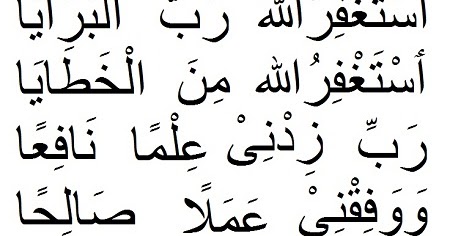 أستغفرالله رب البرايا
أسْتَغْفِرُالله مِنَ الْخَطَايَا
رَبِّ زِدْنِىْ عِلْمًا نَافِعًا
وَوَفِقْنِىْ عَمَلًا صَالِحًا